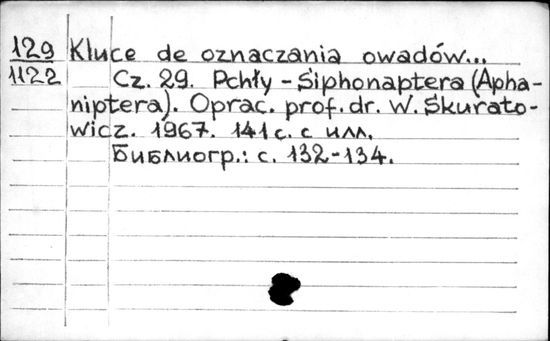 129 Kluce de oznaczania owadów...
1122 Cz. 29. Pchły - Siphonaptera (Apha-
niptera). Oprac. prof. dr. W. Skurato-
wicz. 1967. 141 с. с илл.
Библиогр.: с. 132-134.